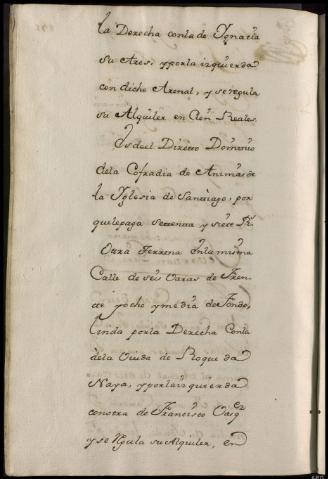 la Derecha con la de Ignacia
su Ares; y por la izquierda
con dicho Arenal; y se regula
su Alquiler en Reales
Es del Directo Dominio
de la Cofradia de Animas de
la Iglesia de Santiago; por
que le paga settenta y siete
Ottra Terrena en la misma
Calle de seis Varas de Fren-
te y ocho y media de Fondo,
linda por la Derecha con la
de la Viuda de Roque da
Naya, y por la izquierda
con otra de Francisco Vazqez
y se regula su Alquiler, en